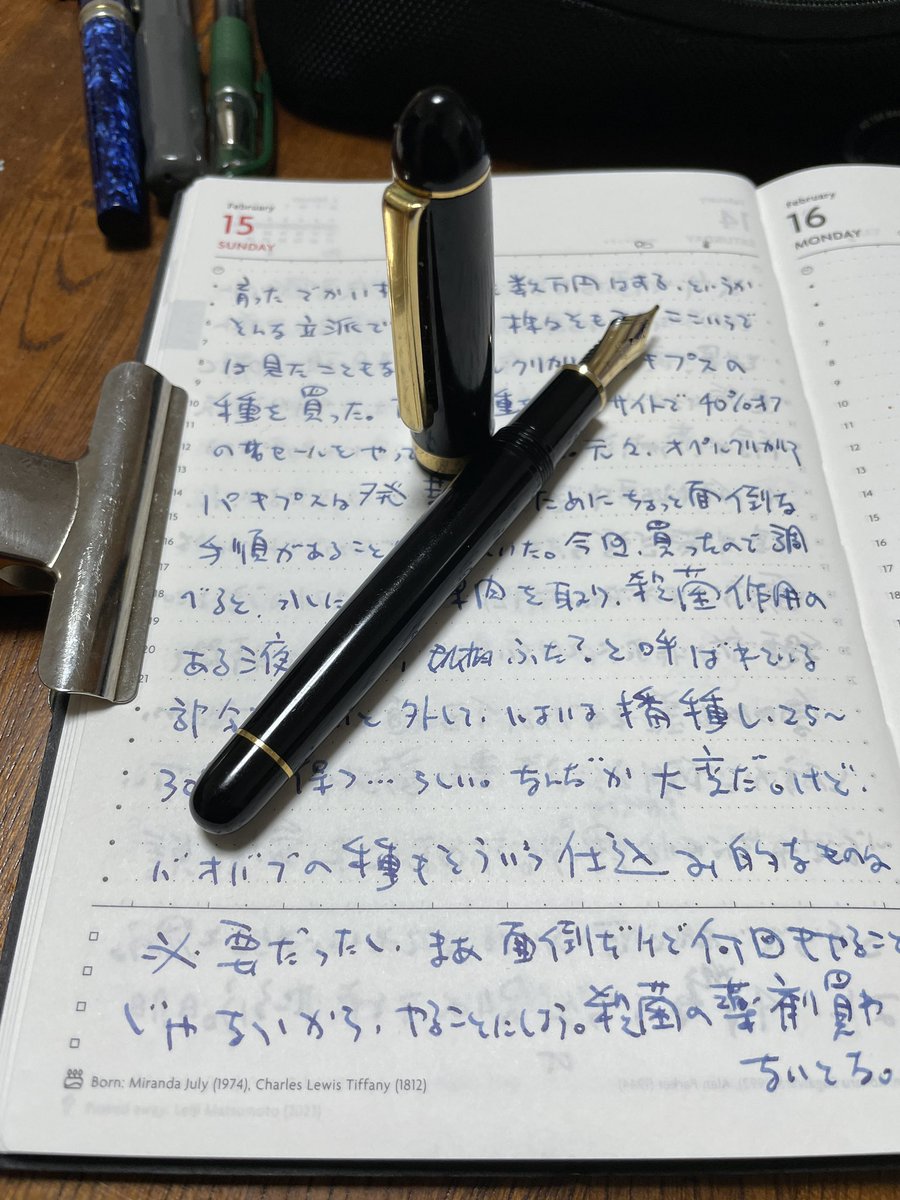 February
15
SUNDAY
February
16
MONDAY
育ったでかい 数万円はする、というか
そんな立派で 株なそも ここいらで
は見たことも クリカリ キプスの
種を買った。 種 サイトで40%オフ
のセールをやっ 。元々、オペルクリカリア
パキプスは発 ためにちょっと面倒な
手順があること いた。今回、買ったので調
べると、水に 果肉を取り、殺菌作用の
ある液 ふた?と呼ばれている
部分 と外して、 播種し、25〜
30 待つ…らしい。なんだか大変だ。けど、
バオバブの種もそういう仕込み的なものは
必要だったし、まあ面倒だけど何回もやること
じゃないから、やることにしよう。殺菌の薬剤買わ
ないとな。
8
9
10
11
12
13
14
15
16
17
19
20
21
Born: Miranda July (1974), Charles Lewis Tiffany (1812)
Passed away: Leiji Matsumoto (2023)